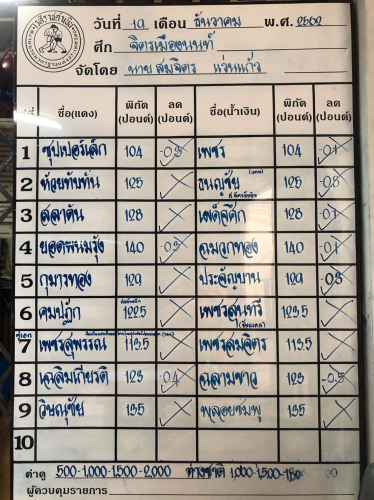 วันที่ 19 เดือน ธันวาคม พ.ศ. 2562
ศึก จิตรเมืองนนท์
จัดโดย นาย สมจิตร แว่นแก้ว
คู่ที่ ชื่อ(แดง) พิกัด (ปอนด์) ลด (ปอนด์) ชื่อ(น้ำเงิน) พิกัด (ปอนด์) ลด (ปอนด์)
1 ซุปเปอร์เล็ก 104 -0.3 เพชร 104 -0.1
2 ห้วยทับทัน 125 ธนญชัย 125 -0.8
3 สลาตัน 128 128 -0.1
4 ยอดพนมรุ้ง 140 -0.3 ฉมวกทอง 140 -0.1
5 กุมารทอง 129 ประจัญบาน 129 -0.3
6 คมปฏัก 122.5 เพชรสุนทรี 123.5
คู่เอก
7 เพชรสุพรรณ 113.5 เพชรสมจิตร 113.5
8 เฉลิมเกียรติ 123 -0.4 ฉลามขาว 123 -0.3
9 วิษณุชัย 135 พลอยชมพู 135
10
ค่าดู 500-1,000-1,500-2,000 ต่างชาติ 1,000-1,500
ผู้ควบคุมรายการ